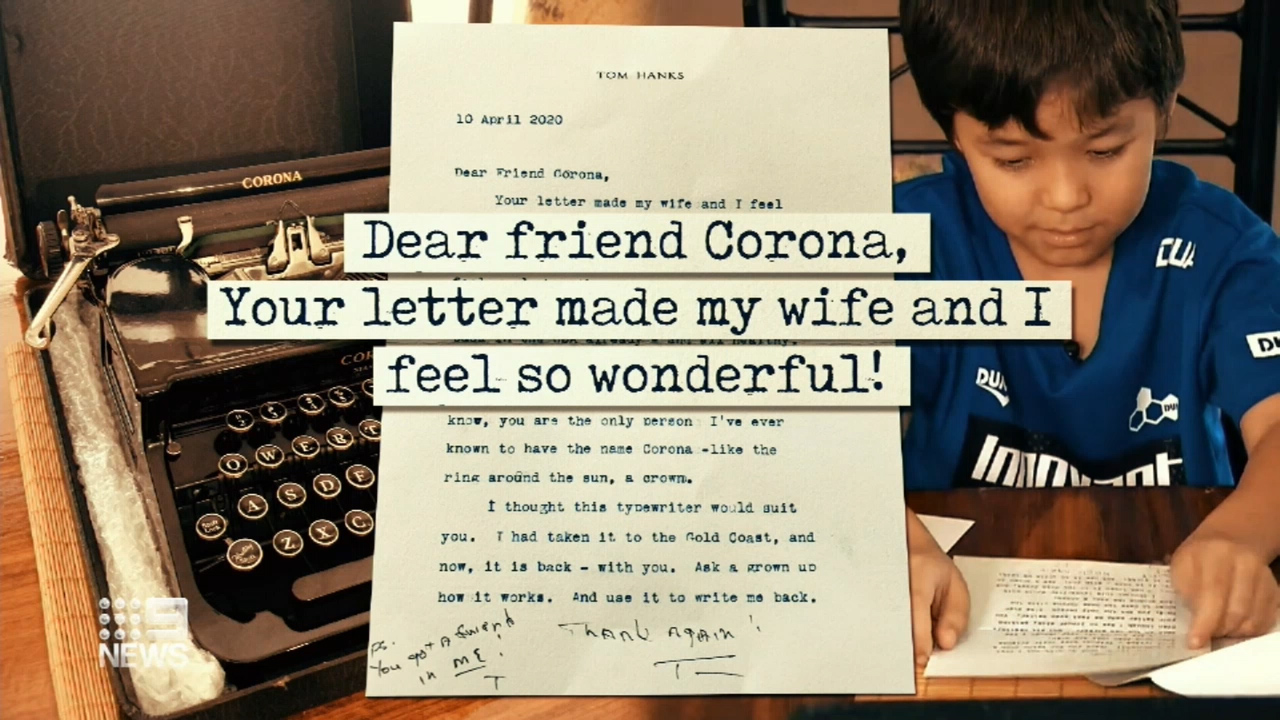 TOM HANKS
10 April 2020
Dear Friend Corona,
Your letter made my wife and I feel
Dear friend Corona,
Your letter made my wife and I
feel so wonderful!
know, you are the only person I've ever
known to have the name Corona -like the
ring around the sun, a crown.
I thought this typewriter would suit
you. I had taken it to the Gold Coast, and
now, it is back - with you. Ask a grown up
how it works. And use it to write me back.
P.S.
You got A friend
in ME!
T
Thank Again!
T
CORONA
Q W E R T
A S D F
Z X C
CUA
DUN
9
NEWS